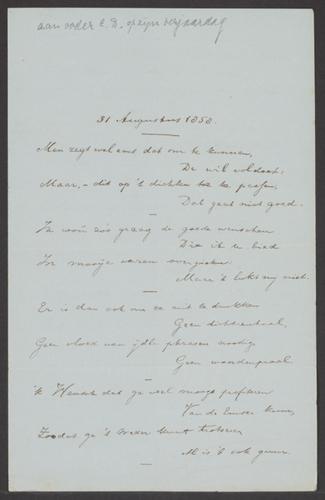 aan vader E.D. op zijn verjaardag
31 Augustus 1858.
Men zegt wel eens dat om te kunnen,
De wil voldoet;
Maar, – dit op 't dichten toe te passen,
Dat gaat niet goed.
Ik wou zoo graag de goede wenschen
Die ik u bied
In mooije verzen overgieten
Maar 't lukt mij niet.
Er is dan ook om ze uit te drukken
Geen dichtertaal,
Geen vloed van ijdle phrasen noodig
Geen woordenpraal
'k Wensch dat ge veel moogt profiteren
Van de kuur,
Zoodat ge 't weder kunt trotseren
Al is 't ook guur.